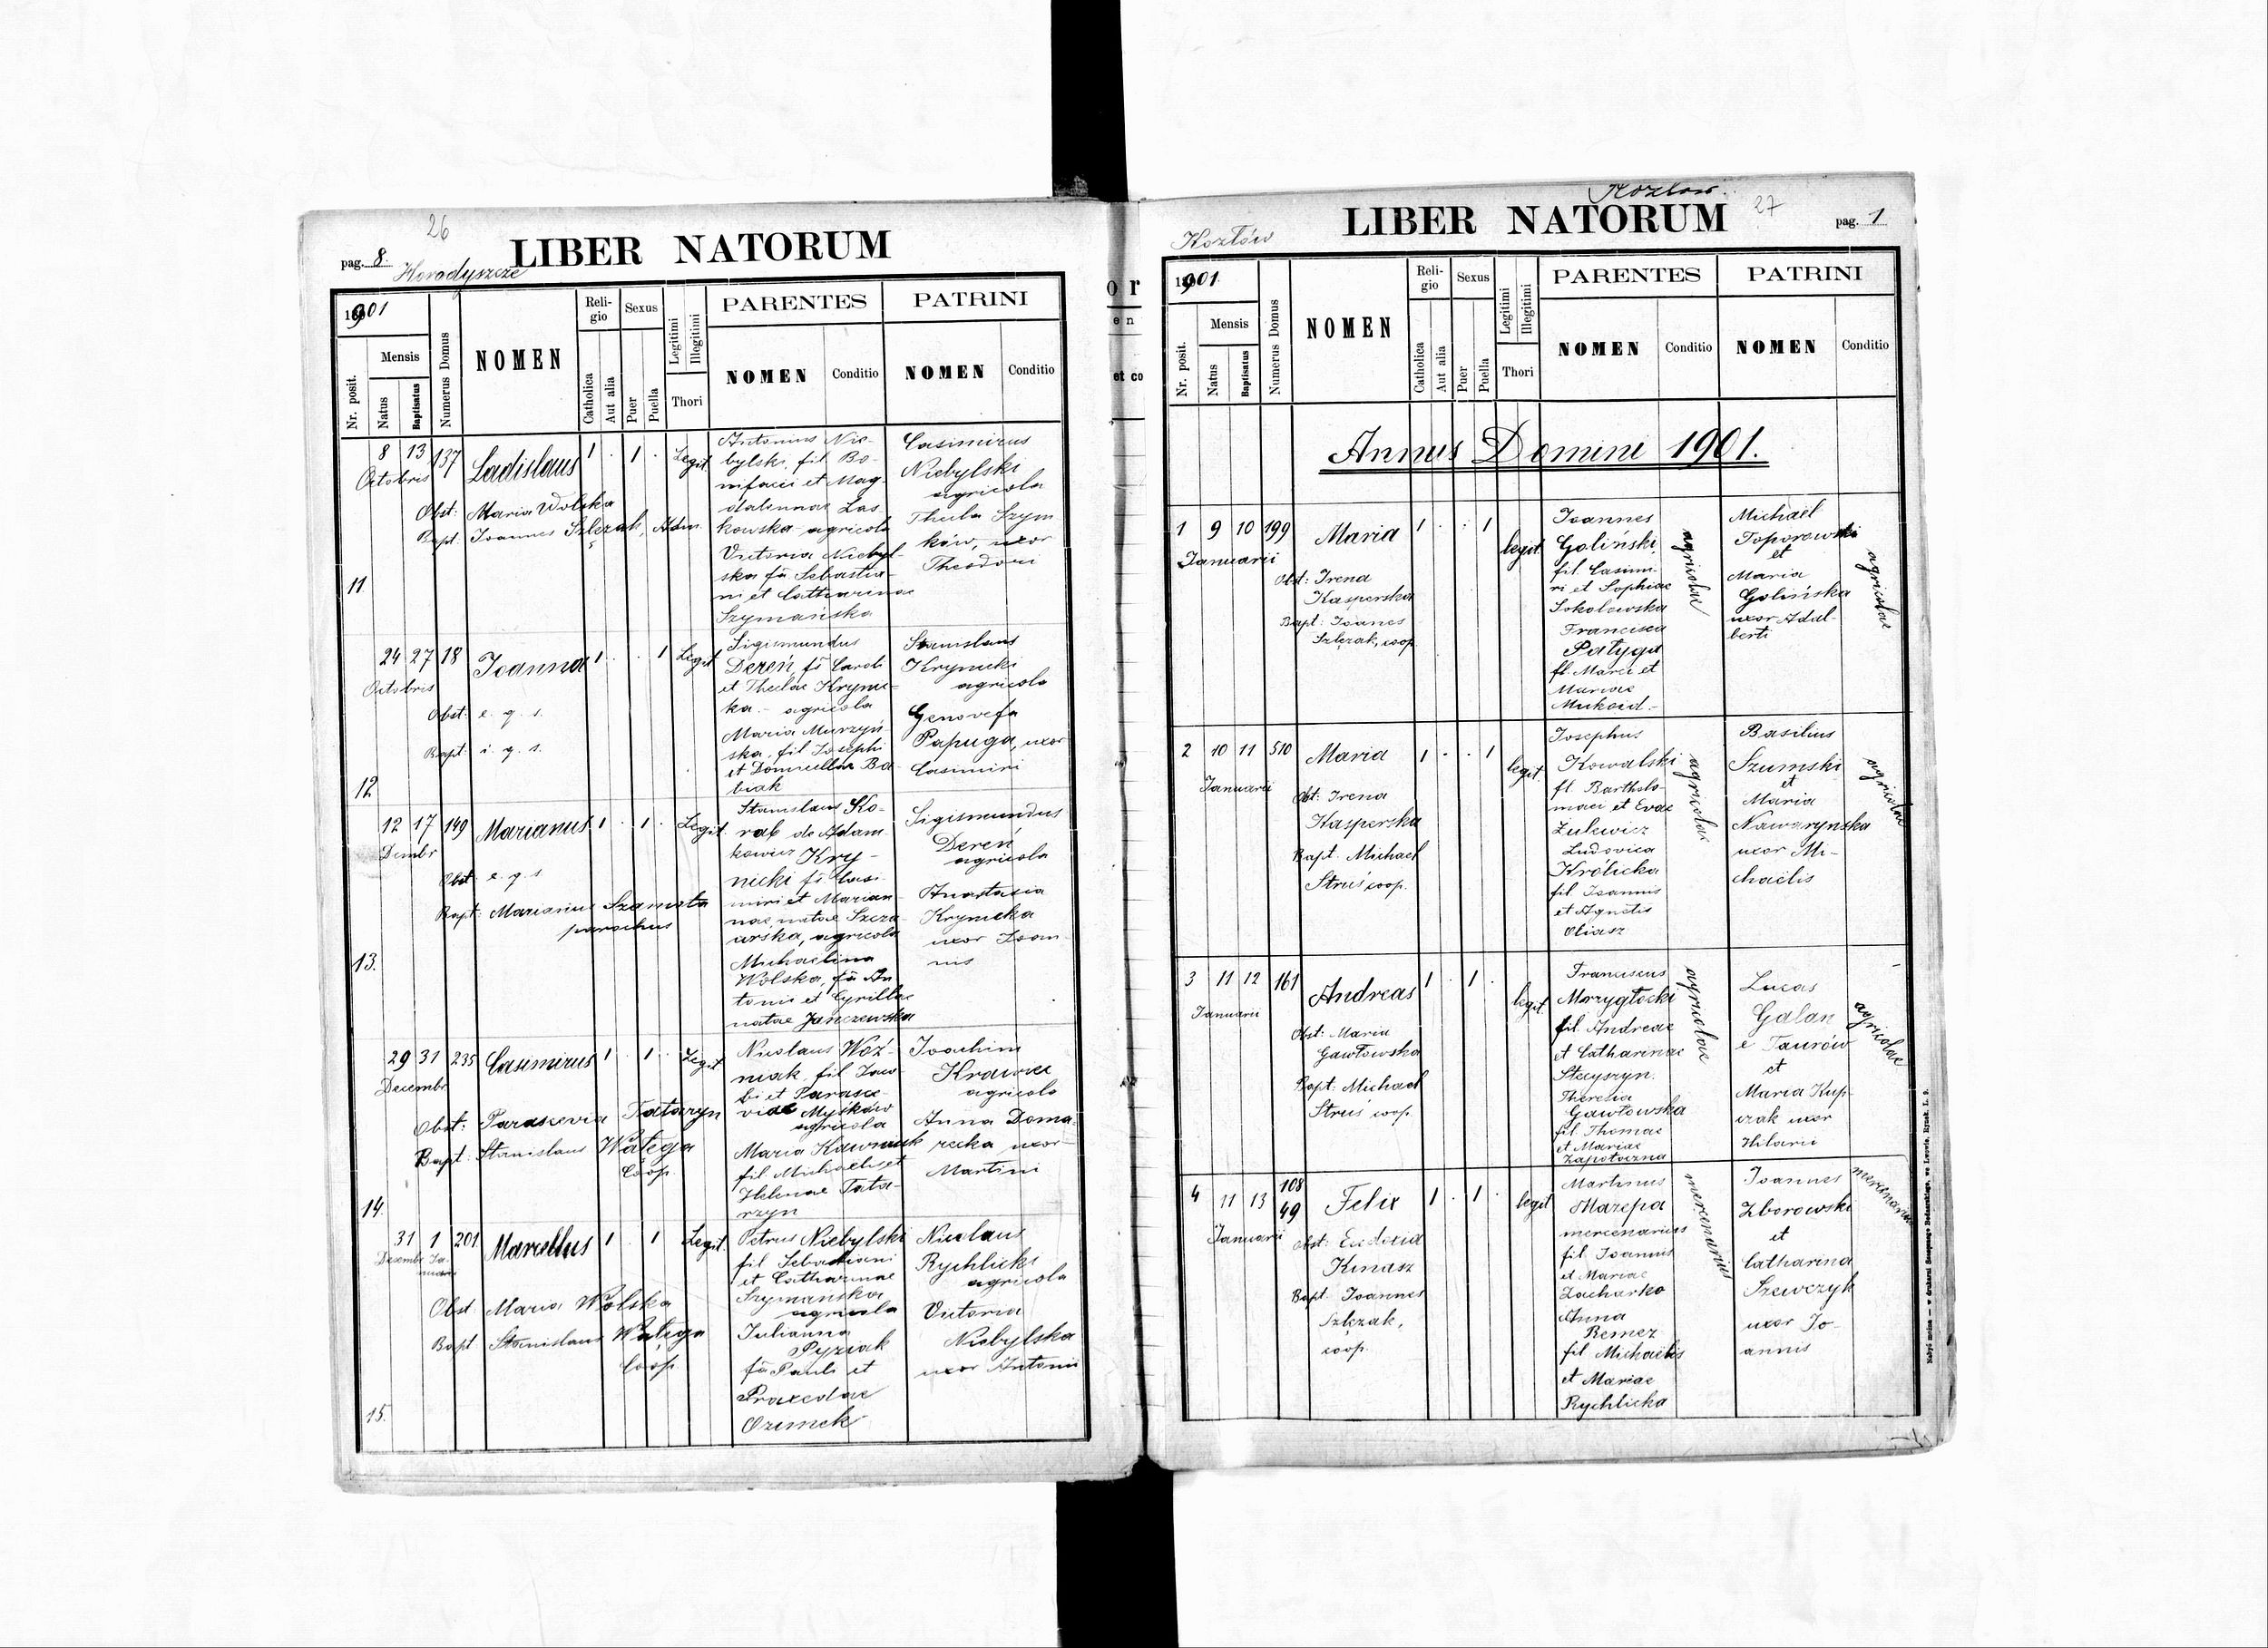 26
pag. 8.
LIBER NATORUM
Horadyszcze
1901
Mensis
Nr. posit.
Natus
Baptisatus
Numerus Domus
NOMEN
Religio
Catholica
Aut alia
Sexus
Puer
Puella
Legitimi
Illegitimi
Thori
PARENTES
NOMEN
Conditio
PATRINI
NOMEN
Conditio
11
8 13 137
Octobris
Ladislaus
1 . 1 . Legit.
Obst: Maria Wolska
Bapt: Joannes Szlęzak, Adm.
Antonius Nie-
bylski, fil Bo-
nifacii et Mag-
dalennae Las
kowska - agricola
Victoria Niebyl-
ska fa Sebastia-
ni et Catharinae
Szymańska
Casimirus
Niebylski
agricola
Thecla Szym
ków, uxor
Theodori
12
24 27 18
Octobris
Joanna
1 . . 1 Legit
Obst: e. q. s.
Bapt: i. q. s.
Sigismundus
Dereń, fs Caroli
et Theclae Kryni-
ka - agricola
Maria Murzyń-
ska, fil Josephi
et Domicellae Ba-
biak
Stanislaus
Krynicki
agricola
Genovefa
Papuga, uxor
Casimiri
13.
12 17 149
Dcmbr
Marianus
1 . 1 . Legit.
Obst: e. q. s
Bapt: Marianus Szamota
parochus
Stanislaus Ko-
rab de Adam
kowicz Kry-
nicki fs Casi-
miri et Marian-
nae natae Szcza-
arska, agricola
Michaelina
Wolska, fa An
tonii et Cyrillae
natae Janczewska
Sigismundus
Dereń
agricola
Anastasia
Krynicka
uxor Joan-
nis
14.
29 31 235
Decembr
Casimirus
1 . 1 . Legit
Obst: Parascevia Tataryn
Bapt: Stanislaus Wałęga
Coop.
Nicolaus Woź-
niak fil Jaco
bi et Parasce-
viae Myśków
agricola
Maria Kawczuk
fil Michaelis et
Helenae Tata-
rzyn
Joachim
Krawiec
agricola
Anna Doma-
recka uxor
Martini
15.
31 1 201
Decembr Januarii
Marcellus
1 . 1 Legit.
Obst Maria Wolska
Bapt Stanislaus Wałęga
Coop.
Petrus Niebylski
fil Sebastiani
et Catharinae
Szymańska
agricola
Julianna
Pyziak
fa Pauli et
Praxedae
Ozimek
Nicolaus
Rychlicki
agricola
Victoria
Niebylska
uxor Antonii
Kozłow.
27
LIBER NATORUM
pag. 1
Kozłów
1901.
Mensis
Nr. posit.
Natus
Baptisatus
Numerus Domus
NOMEN
Religio
Catholica
Aut alia
Sexus
Puer
Puella
Legitimi
Illegitimi
Thori
PARENTES
NOMEN
Conditio
PATRINI
NOMEN
Conditio
Annus Domini 1901.
1 9 10 199
Januarii
Maria
1 . . 1 legit.
Obst: Irena
Kasperska
Bapt: Joanes
Szlęzak, coop.
Joannes
Goliński,
fil. Casimi-
ri et Sophiae
Sokolowska
Francisca
Patyga
fl. Marci et
Mariae
Mukoid.-
agricolae
Michaël
Toporowski
et
Maria
Golińska
uxor Adal-
berti
agricolae
2 10 11 510
Januarii
Maria
1 . . 1 legit.
Obst: Irena
Kasperska
Bapt. Michael
Struś coop.
Josephus
Kowalski
fl. Bartholo-
maei et Evae
Zulewicz
Ludovica
Królicka
fil Joannis
et Agnetis
Oliasz
agricolae
Basilius
Szumski
et
Maria
Nawarynska
uxor Mi-
chaëlis
agricolae
3 11 12 161
Januarii
Andreas
1 . 1 . legit.
Obst: Maria
Gawłowska
Bapt: Michael
Struś coop.
Franciscus
Mrzygłocki
fil. Andreae
et Catharinae
Stayszyn.
Theresia
Gawłowska
fil. Thomae
et Mariae
Zapotoczna
agricolae
Lucas
Galan
e Taurów
et
Maria Kup-
czak uxor
Hilarii
agricolae
4 11 13 108
49
Januarii
Felix
1 . 1 . legit
Obst: Eudoxia
Kinasz
Bapt. Joannes
Szlęzak,
coop.
Martinus
Mazepa
mercenarius
fil Joannis
et Mariae
Zacharko
Anna
Remez
fil Michaëlis
et Mariae
Rychlicka
mercenarius
Joannes
Zborowski
et
Catharina
Szewczyk
uxor Jo-
annis
mercenarius